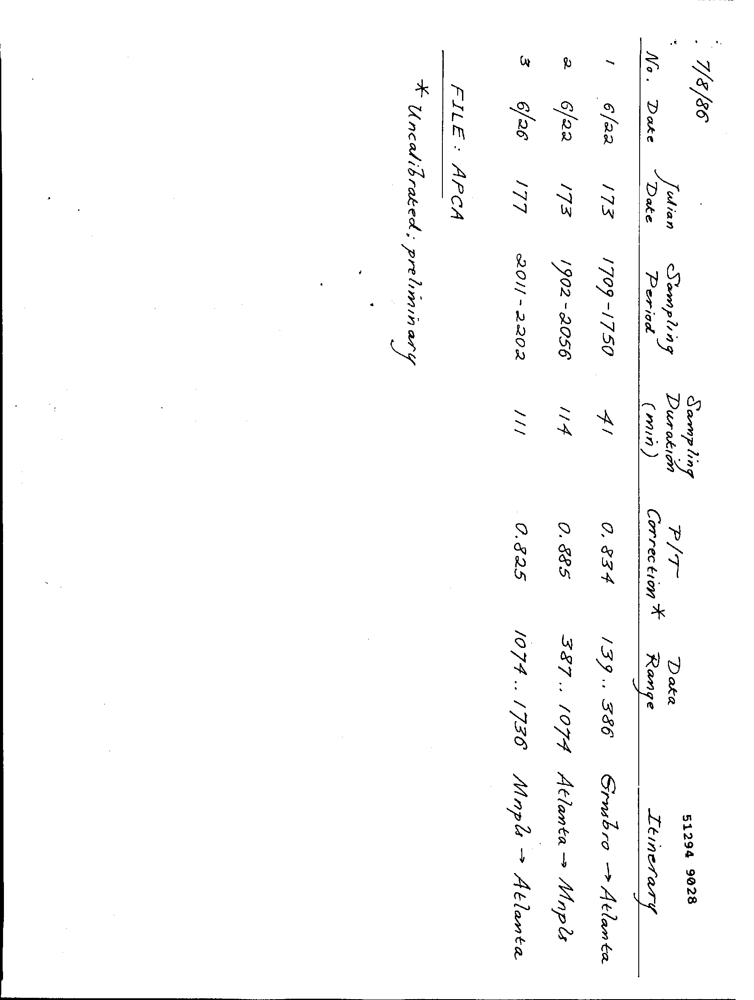 7/8/86
51294 9028
No. Date Julian Date Sampling Period Sampling Duration (min) P/T Correction * Data Range Itinerary
1 6/22 173 1709-1750 41 0.834 139.. 386 Grnsbro → Atlanta
2 6/22 173 1902-2056 114 0.885 387.. 1074 Atlanta → Mnpls
3 6/26 177 2011-2202 111 0.825 1074.. 1736 Mnpls → Atlanta
FILE: APCA
* Uncalibrated; preliminary